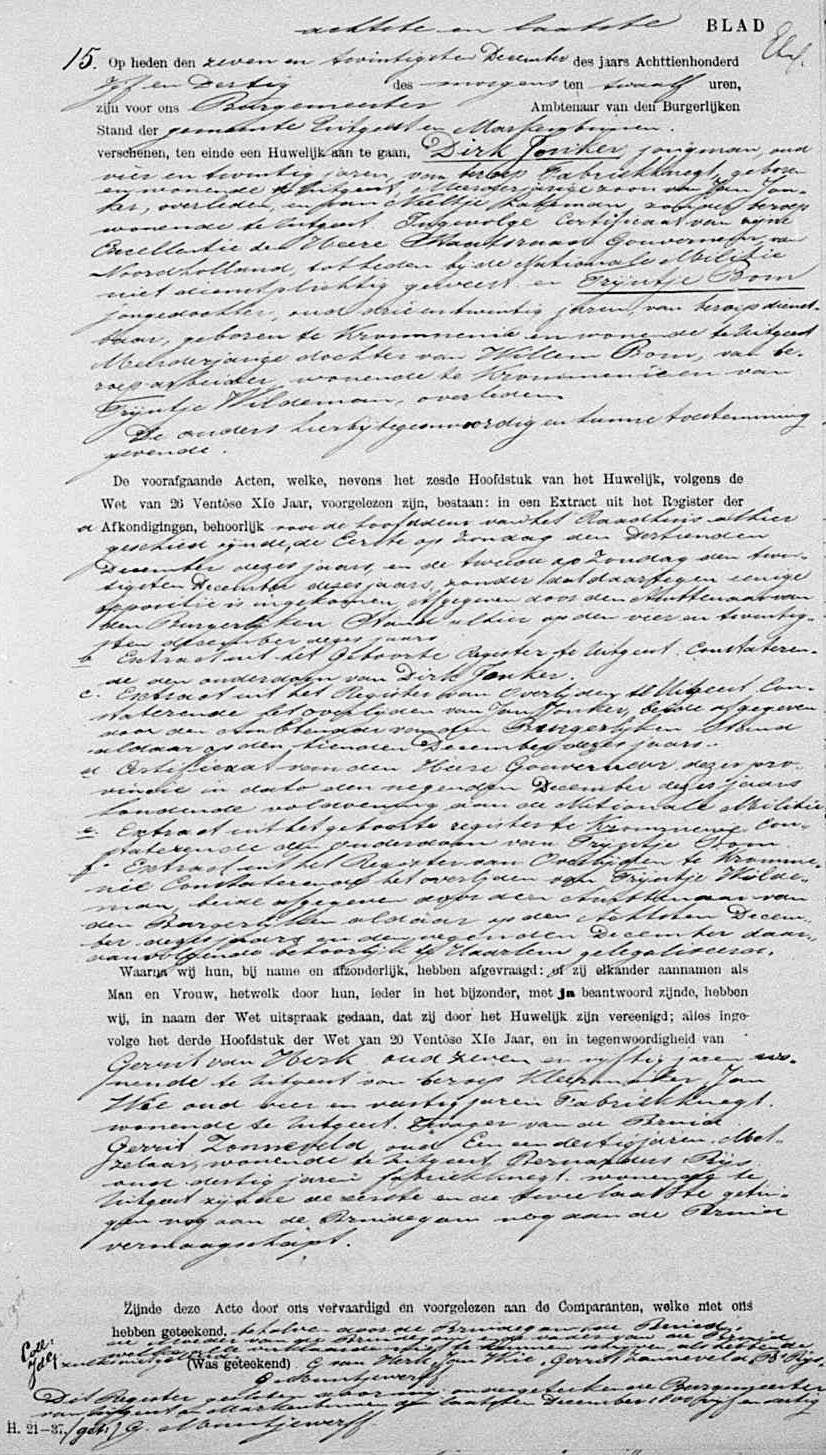 achtste en laatste BLAD
15. Op heden den zeven en twintigsten December des jaars Achttienhonderd
Vijf en Dertig des morgens ten twaalf uren,
zijn voor ons Burgemeester Ambtenaar van den Burgerlijken
Stand der gemeente Uitgeest en Markenbinnen.
verschenen, ten einde een Huwelijk aan te gaan, Dirk Jonker, jongman, oud
vier en twintig jaren, van beroep Fabriekknegt, geboren
en wonende te Uitgeest, Meerderjarige zoon van Jan Jon-
ker, overleden, en van Neeltje zonder beroep
wonende te Uitgeest. Ingevolge Certificaat van zijne
Excellentie den Heere Staatsraad Gouverneur van
Noordholland, tot heden bij de Nationale Militie
niet dienstpligtig geweest en Trijntje Bom
jongedochter, oud drie en twintig jaren, van beroep dienst-
baar, geboren te Krommenie en wonende te Uitgeest
Meerderjarige dochter van Willem Bom, van be-
roep arbeider, wonende te Krommenie en van
Trijntje Wildeman, overleden
De ouders hierbij tegenwoordig en hunne toestemming
gevende.
De voorafgaande Acten, welke, nevens het zesde Hoofdstuk van het Huwelijk, volgens de
Wet van 26 Ventôse XIe Jaar, voorgelezen zijn, bestaan: in een Extract uit het Register der
a Afkondigingen, behoorlijk voor de hoofddeur van het Raadhuis alhier
geschied zijnde, de Eerste op Zondag den Dertienden
December dezes jaars, en de tweede op Zondag den twin-
tigsten December dezes jaars, zonder dat daartegen eenige
oppositie is ingekomen, afgegeven door den Ambtenaar van
den Burgerlijken Stand alhier op den vier en twintig-
sten december dezes jaars
b Extract uit het Geboorte Register te Uitgeest. Constateren-
de den ouderdom van Dirk Jonker.
c. Extract uit het Register van Overlijden te Uitgeest, Con-
staterende het overlijden van Jan Jonker, beide afgegeven
door den Ambtenaar van den Burgerlijken Stand
aldaar op den tienden December dezes jaars.
d Certificaat van den Heere Gouverneur dezer pro-
vincie in dato den negenden December dezes jaars
houdende voldoening aan de Nationale Militie
e. Extract uit het geboorte register te Krommenie, Con-
staterende den ouderdom van Trijntje Bom.
f. Extract uit het Register van Overlijden te Kromme-
nie Constaterende het overlijden van Trijntje Wilde-
man, beide afgegeven door den Ambtenaar van
den Burgerlijken aldaar op den Achtsten Decem-
ber dezes jaars en den negenden December daar-
aanvolgende behoorlijk te Haarlem gelegaliseerd.
Waarna wij hun, bij name en afzonderlijk, hebben afgevraagd: of zij elkander aannamen als
Man en Vrouw, hetwelk door hun, ieder in het bijzonder, met ja beantwoord zijnde, hebben
wij, in naam der Wet uitspraak gedaan, dat zij door het Huwelijk zijn vereenigd; alles inge-
volge het derde Hoofdstuk der Wet van 20 Ventôse XIe Jaar, en in tegenwoordigheid van
Gerrit van Herk oud zeven en vijftig jaren wo-
nende te Uitgeest van beroep Kleermaker, Jan
Wie oud vier en veertig jaren Fabriekknegt.
wonende te Uitgeest. Zwager van de Bruid
Gerrit Zonneveld oud Een en dertig jaren Met-
zelaar, wonende te Uitgeest Bernardus Rijs
oud dertig jaren fabriekknegt. wonende te
Uitgeest zijnde de eerste en de twee laatste getui-
gen nog aan de Bruidegom nog aan de Bruid
vermaagschapt.
Zijnde deze Acte door ons vervaardigd en voorgelezen aan de Comparanten, welke met ons
hebben geteekend, behalve door de Bruidegom de Bruid,
de Moeder van de Bruidegom en de vader van de Bruid
(Was geteekend) G van Herk, Jan Wie, Gerrit Zonneveld, Bs Rijs,
G Muntjewerff
Dit Register gesloten door mij ondergeteekende Burgemeester
van Uitgeest en Markenbinnen op laatsten December 1800 vijf en dertig
H. 21-37. (get:) G. Muntjewerff